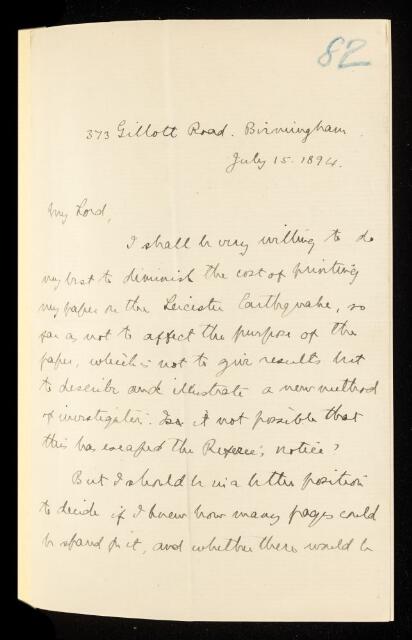 82
373 Gillott Road. Birmingham.
July 15. 1894.
My Lord,
I shall be very willing to do
my best to diminish the cost of printing
my paper on the Leicester Earthquake, so
far as not to affect the purpose of the
paper, which is not to give results but
to describe and illustrate a new method
of investigation. Is it not possible that
this has escaped the Referee's notice?
But I should be in a better position
to decide if I knew how many pages could
be spared for it, and whether there would be